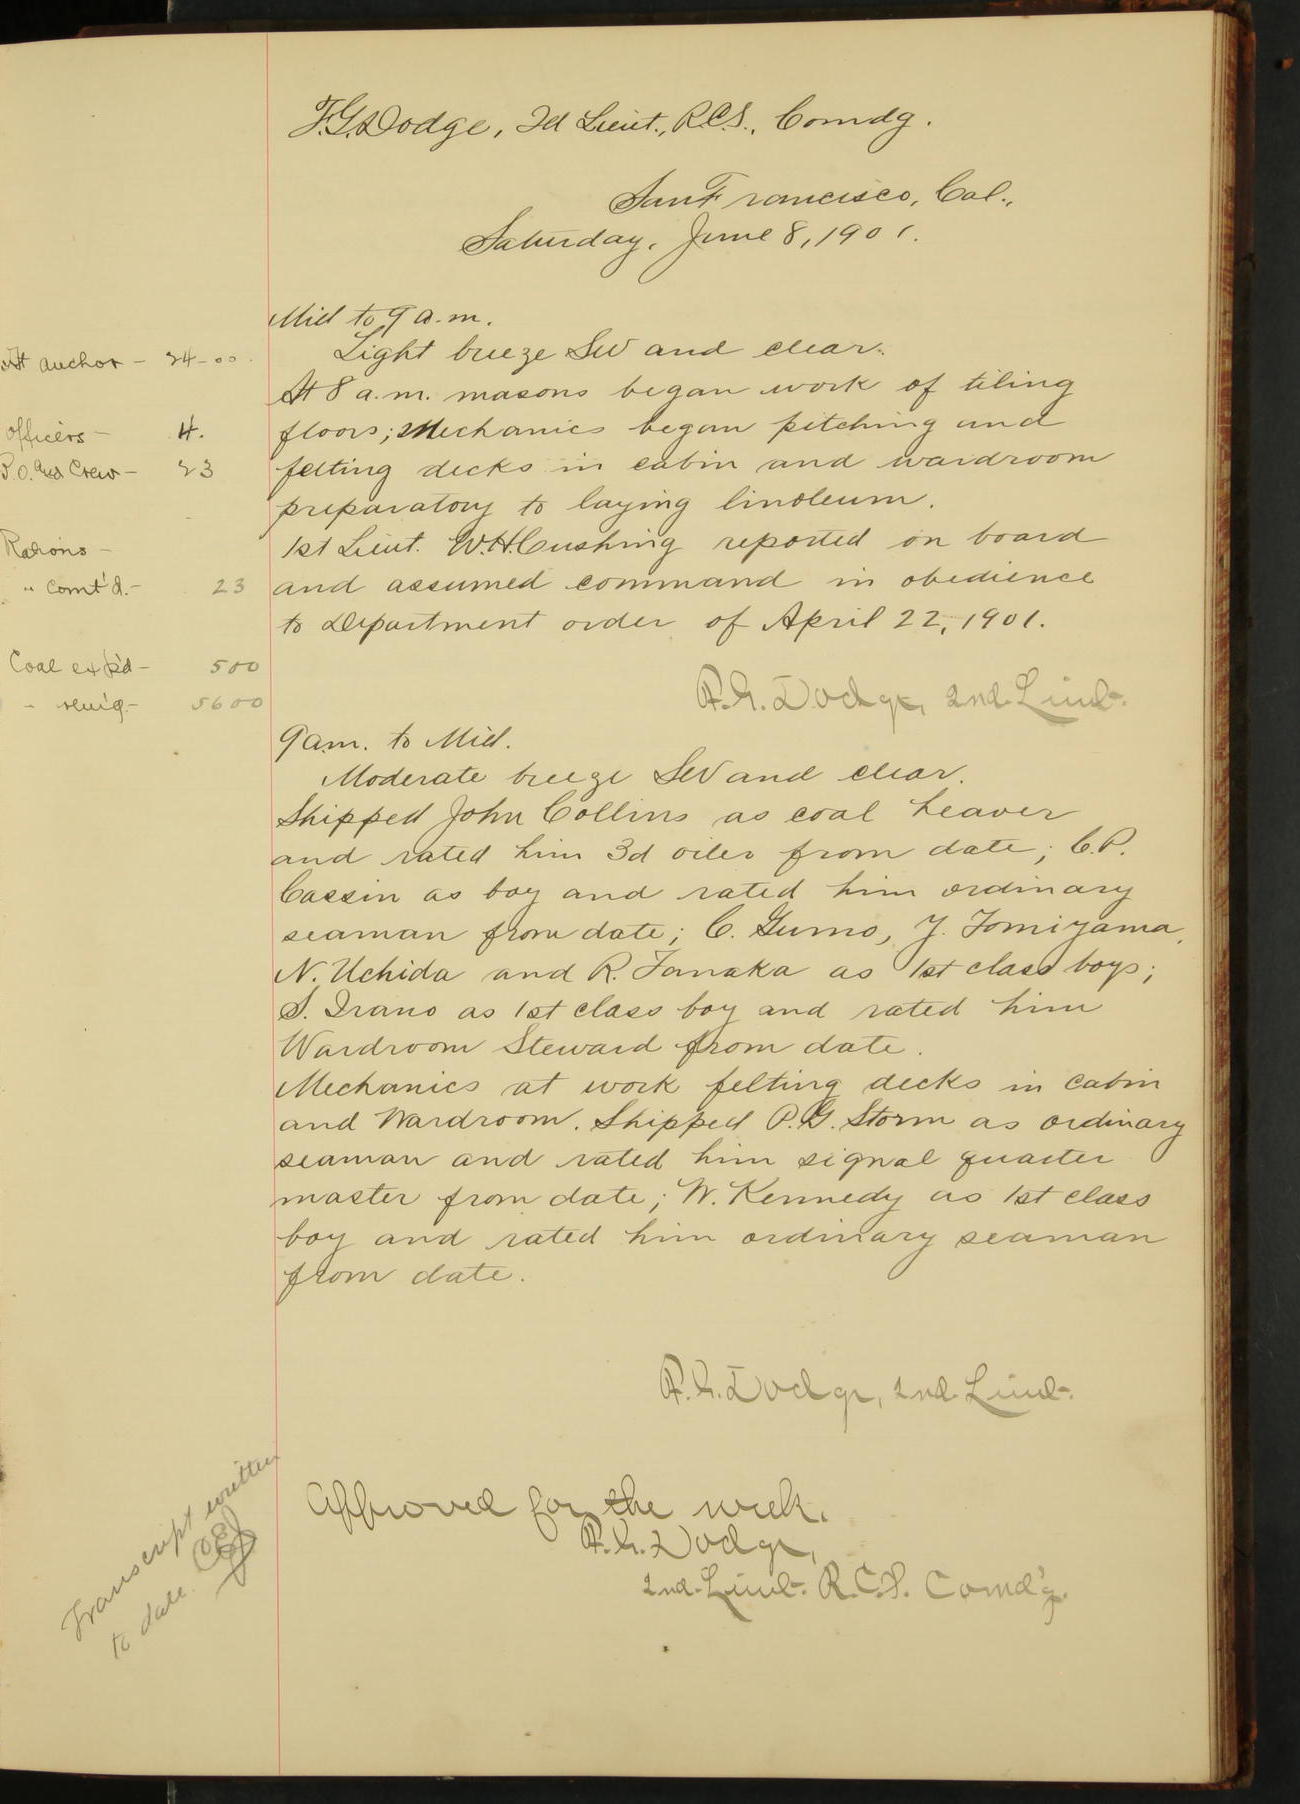 F.G. Dodge, 2d Lieut., R.C.S., Comdg.
San Francisco, Cal.,
Saturday, June 8, 1901.
Mid to 9 a.m.
Light breeze SW and clear.
At 8 a.m. masons began work of tiling
floors; Mechanics began pitching and
felting decks in cabin and wardroom
preparatory to laying linoleum.
1st Lieut. W.H. Cushing reported on board
and assumed command in obedience
to Department order of April 22, 1901.
F.G. Dodge, 2nd Lieut.
9 a.m. to Mid.
Moderate breeze SW and clear.
Shipped John Collins as coal heaver
and rated him 3d oiler from date; C.P.
Cassin as boy and rated him ordinary
seaman from date; C. Gumo, Y. Tomiyama,
N. Uchida and R. Tanaka as 1st class boys;
S. Irano as 1st class boy and rated him
Wardroom Steward from date.
Mechanics at work felting decks in cabin
and Wardroom. Shipped P.G. Storm as ordinary
seaman and rated him signal quarter
master from date; W. Kennedy as 1st class
boy and rated him ordinary seaman
from date.
F.G. Dodge, 2nd Lieut.
Approved for the week.
F.G. Dodge,
2nd Lieut. R.C.S. Comd'g.
At anchor - 24-00
Officers - 4.
P.O. and Crew - 23
Rations -
" Comt'd. - 23
Coal exp'd - 500
- rem'g. - 5600
Transcript written
to date.